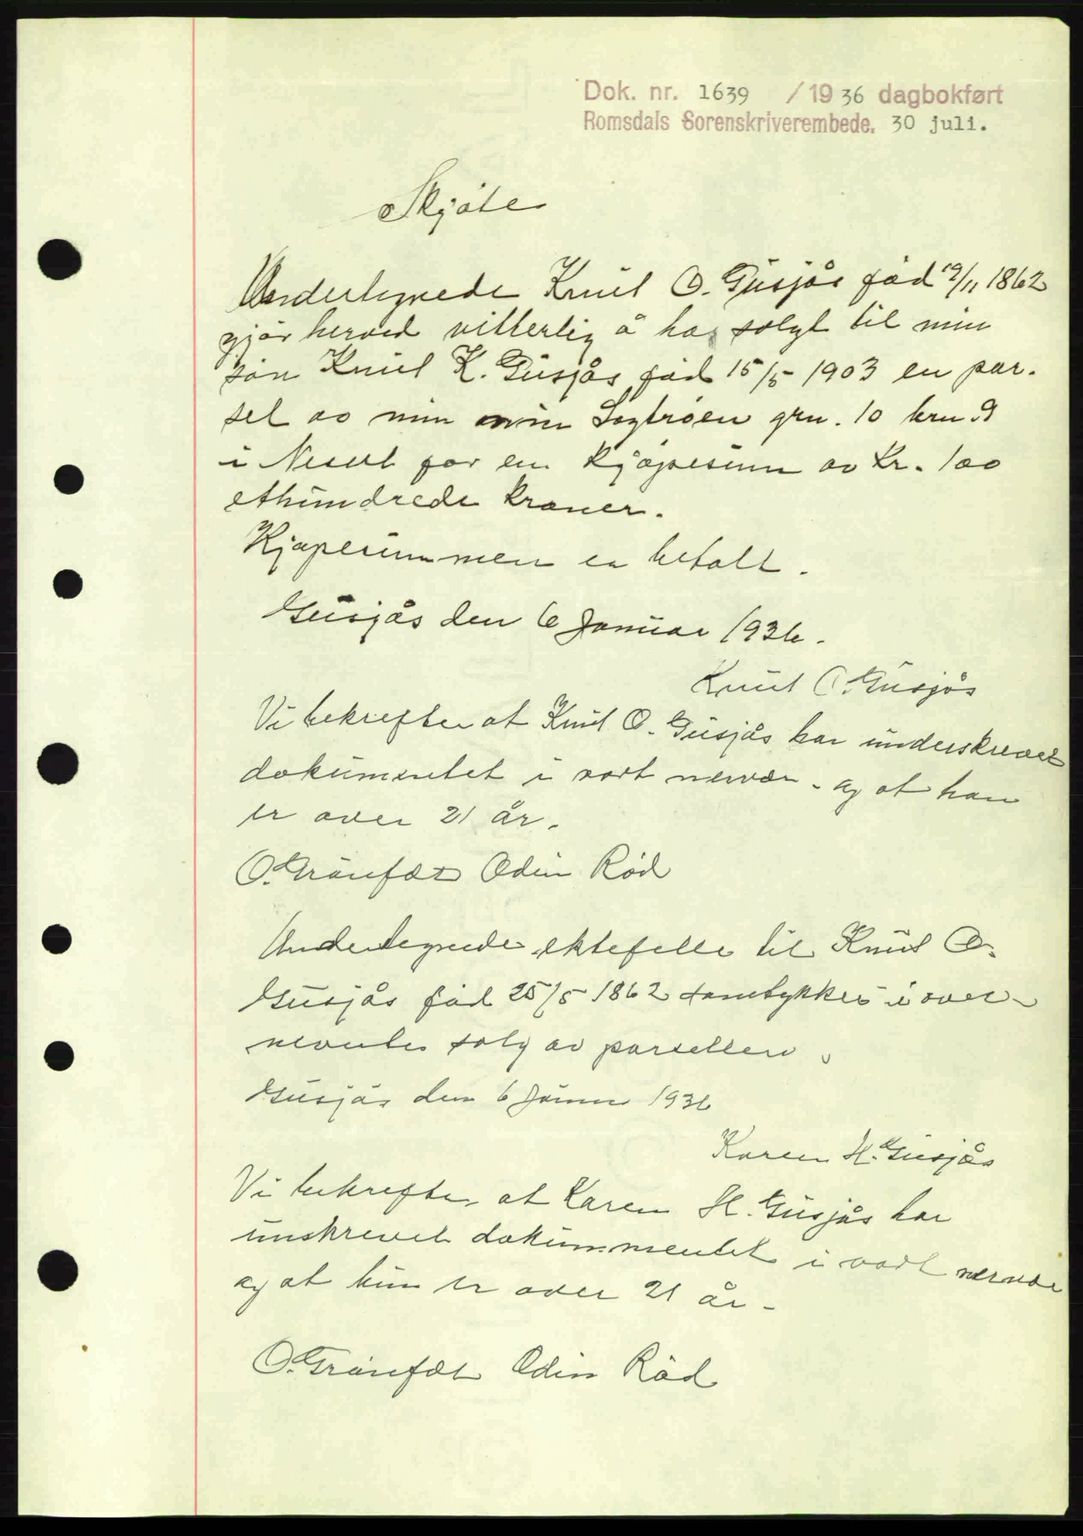 Dok. nr. 1639 / 1936 dagbokført
Romsdals Sorenskriverembede. 30 juli.
Skjøte
Undertegnede Knut O. Gusjås fød 19/11 1862
gjør herved vitterlig å ha solgt til min
søn Knut K. Gusjås fød 15/5 1903 en par-
sel av min min grn. 10 brn 9
i Nesset for en kjøpesum av Kr. 100
ethundrede kroner.
Kjøpesummen er betalt.
Gusjås den 6 Januar 1936.
Knut O. Gusjås
Vi bekrefter at Knut O. Gusjås har underskrevet
dokumentet i vort nervær og at han
er over 21 år.
O. Grønfæt Odin Rød
Undertegnede ektefelle til Knut O.
Gusjås fød 25/5 1862 samtykker i over-
nevnte salg av parsellen.
Gusjås den 6 Januar 1936
Karen H. Gusjås
Vi bekrefter at Karen H. Gusjås har
unskrevet dokummentet i vort nervær
og at hun er over 21 år.
O. Grønfæt Odin Rød